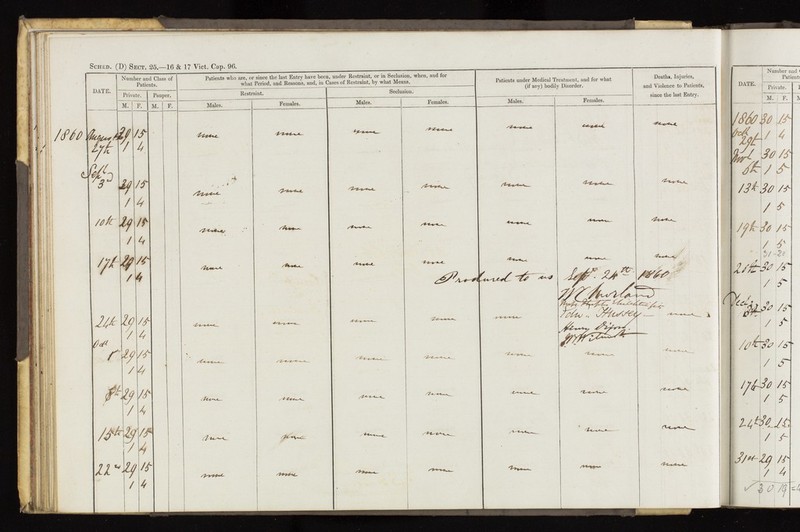 SCHED. (D) SECT. 25,—16 & 17 Vict. Cap. 96.
DATE.
Number and Class of Patients.
Private. Pauper.
M. F. M. F.
Patients who are, or since the last Entry have been, under Restraint, or in Seclusion, when, and for
what Period, and Reasons, and, in Cases of Restraint, by what Means.
Restraint. Seclusion.
Males. Females. Males. Females.
Patients under Medical Treatment, and for what
(if any) bodily Disorder.
Males. Females.
Deaths, Injuries,
and Violence to Patients,
since the last Entry.
1860 August 29 15 none none none none none none none
27th 1 4
Sept
3d 29 15 none none none none none none none
1 4
10th 29 15 none none none none none none none
1 4
17th 29 15 none none none none none none none
1 4
Produced to us Sept 24th 1860
24th 29 15 none none none none none none
1 4
Octr
1 29 15 none none none none none none none
1 4
8th 29 15 none none none none none none none
1 4
15th 29 15 none none none none none none none
1 4
22nd 29 15 none none none none none none none
1 4
DATE.
Number and
Patients
Private.
M. F.
1860 30 15
Oct 29th 1 4
30 15
1 5
13th 30 15
1 5
19th 30 15
1 5
30 15
1 5
30 15
1 5
10th 30 15
1 5
17th 30 15
1 5
24th 30 15
1 5
31st 29 15
1 4
30 19